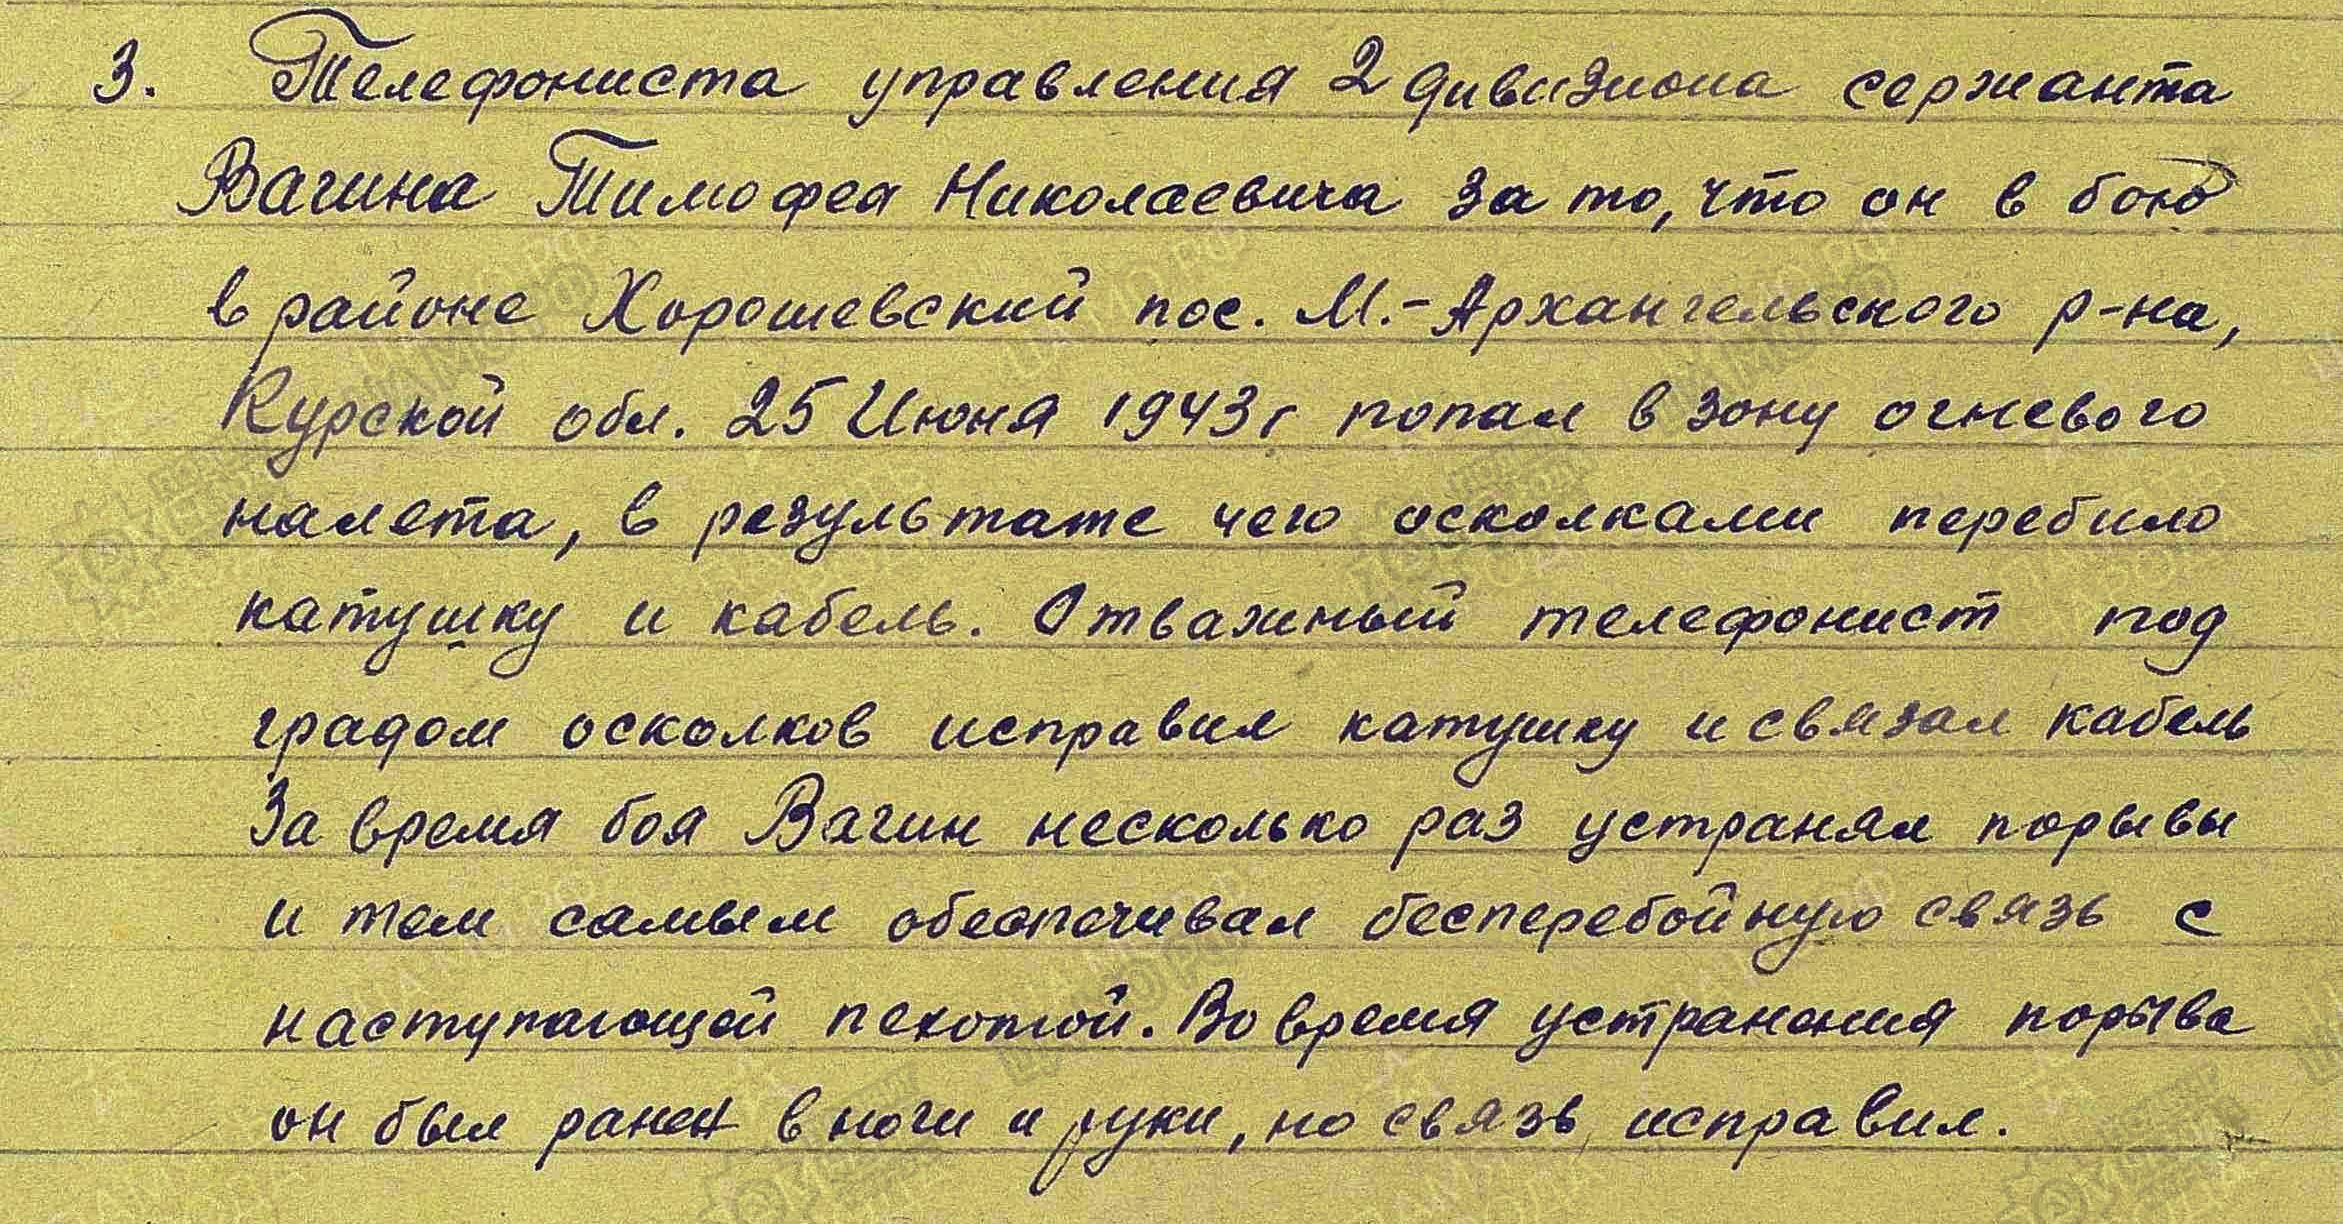 3. Телефониста управления 2 дивизиона сержанта
Вагина Тимофея Николаевича за то, что он в бою
в районе Хорошевский пос. М.-Архангельского р-на,
Курской обл. 25 Июня 1943г попал в зону огневого
налета, в результате чего осколками перебило
катушку и кабель. Отважный телефонист под
градом осколков исправил катушку и связал кабель
За время боя Вагин несколько раз устранял порывы
и тем самым обеспечивал бесперебойную связь с
наступающей пехотой. Во время устранения порыва
он был ранен в ноги и руки, но связь исправил.